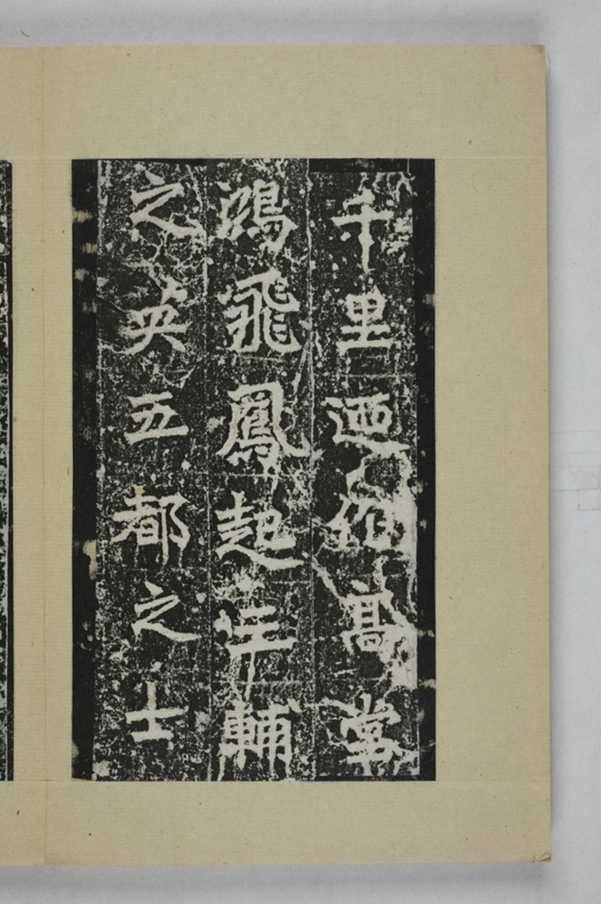 千里迺高堂
鴻飛鳳起三輔
之英五都之士